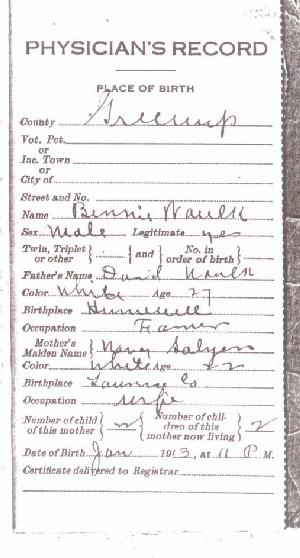 PHYSICIAN'S RECORD
PLACE OF BIRTH
County Greenup
Vot. Pct.
or
Inc. Town
or
City of
Street and No.
Name Bennie Waulk
Sex Male Legitimate yes
Twin, Triplet or other } { and } No. in order of birth {
Father's Name David Waulk
Color White Age 27
Birthplace
Occupation Farmer
Mother's Maiden Name } Nancy Salyers
Color White Age 22
Birthplace Lawrence Co
Occupation wife
Number of child of this mother } { Number of children of this mother now living } 2
Date of Birth Jan 1913, at 11 P. M.
Certificate delivered to Registrar